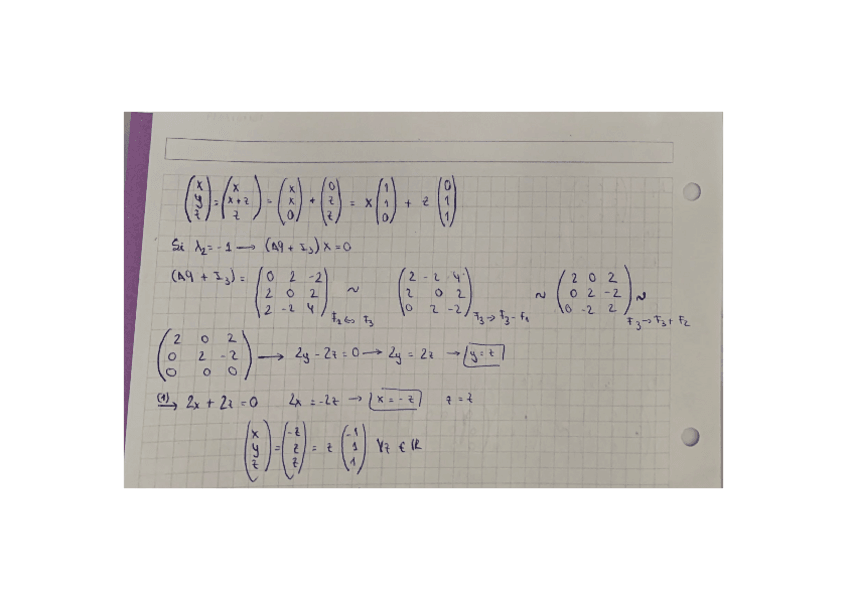 (x y z) = (x x+z z) = (x x 0) + (0 z z) = x (1 1 0) + z (0 1 1)
Si λ₂ = -1 → (A9 + I₃) X = 0
(A9 + I₃) = (0 2 -2 / 2 0 2 / 2 -2 4) ~ F₁ ↔ F₃ (2 -2 4 / 2 0 2 / 0 2 -2) F₃ → F₃ - F₁ ~ (2 0 2 / 0 2 -2 / 0 -2 2) ~ F₃ → F₃ + F₂
(2 0 2 / 0 2 -2 / 0 0 0) → 2y - 2z = 0 → 2y = 2z → y = z
(1) → 2x + 2z = 0 2x = -2z → x = -z z = z
(x y z) = (-z z z) = z (-1 1 1) ∀z ∈ ℝ